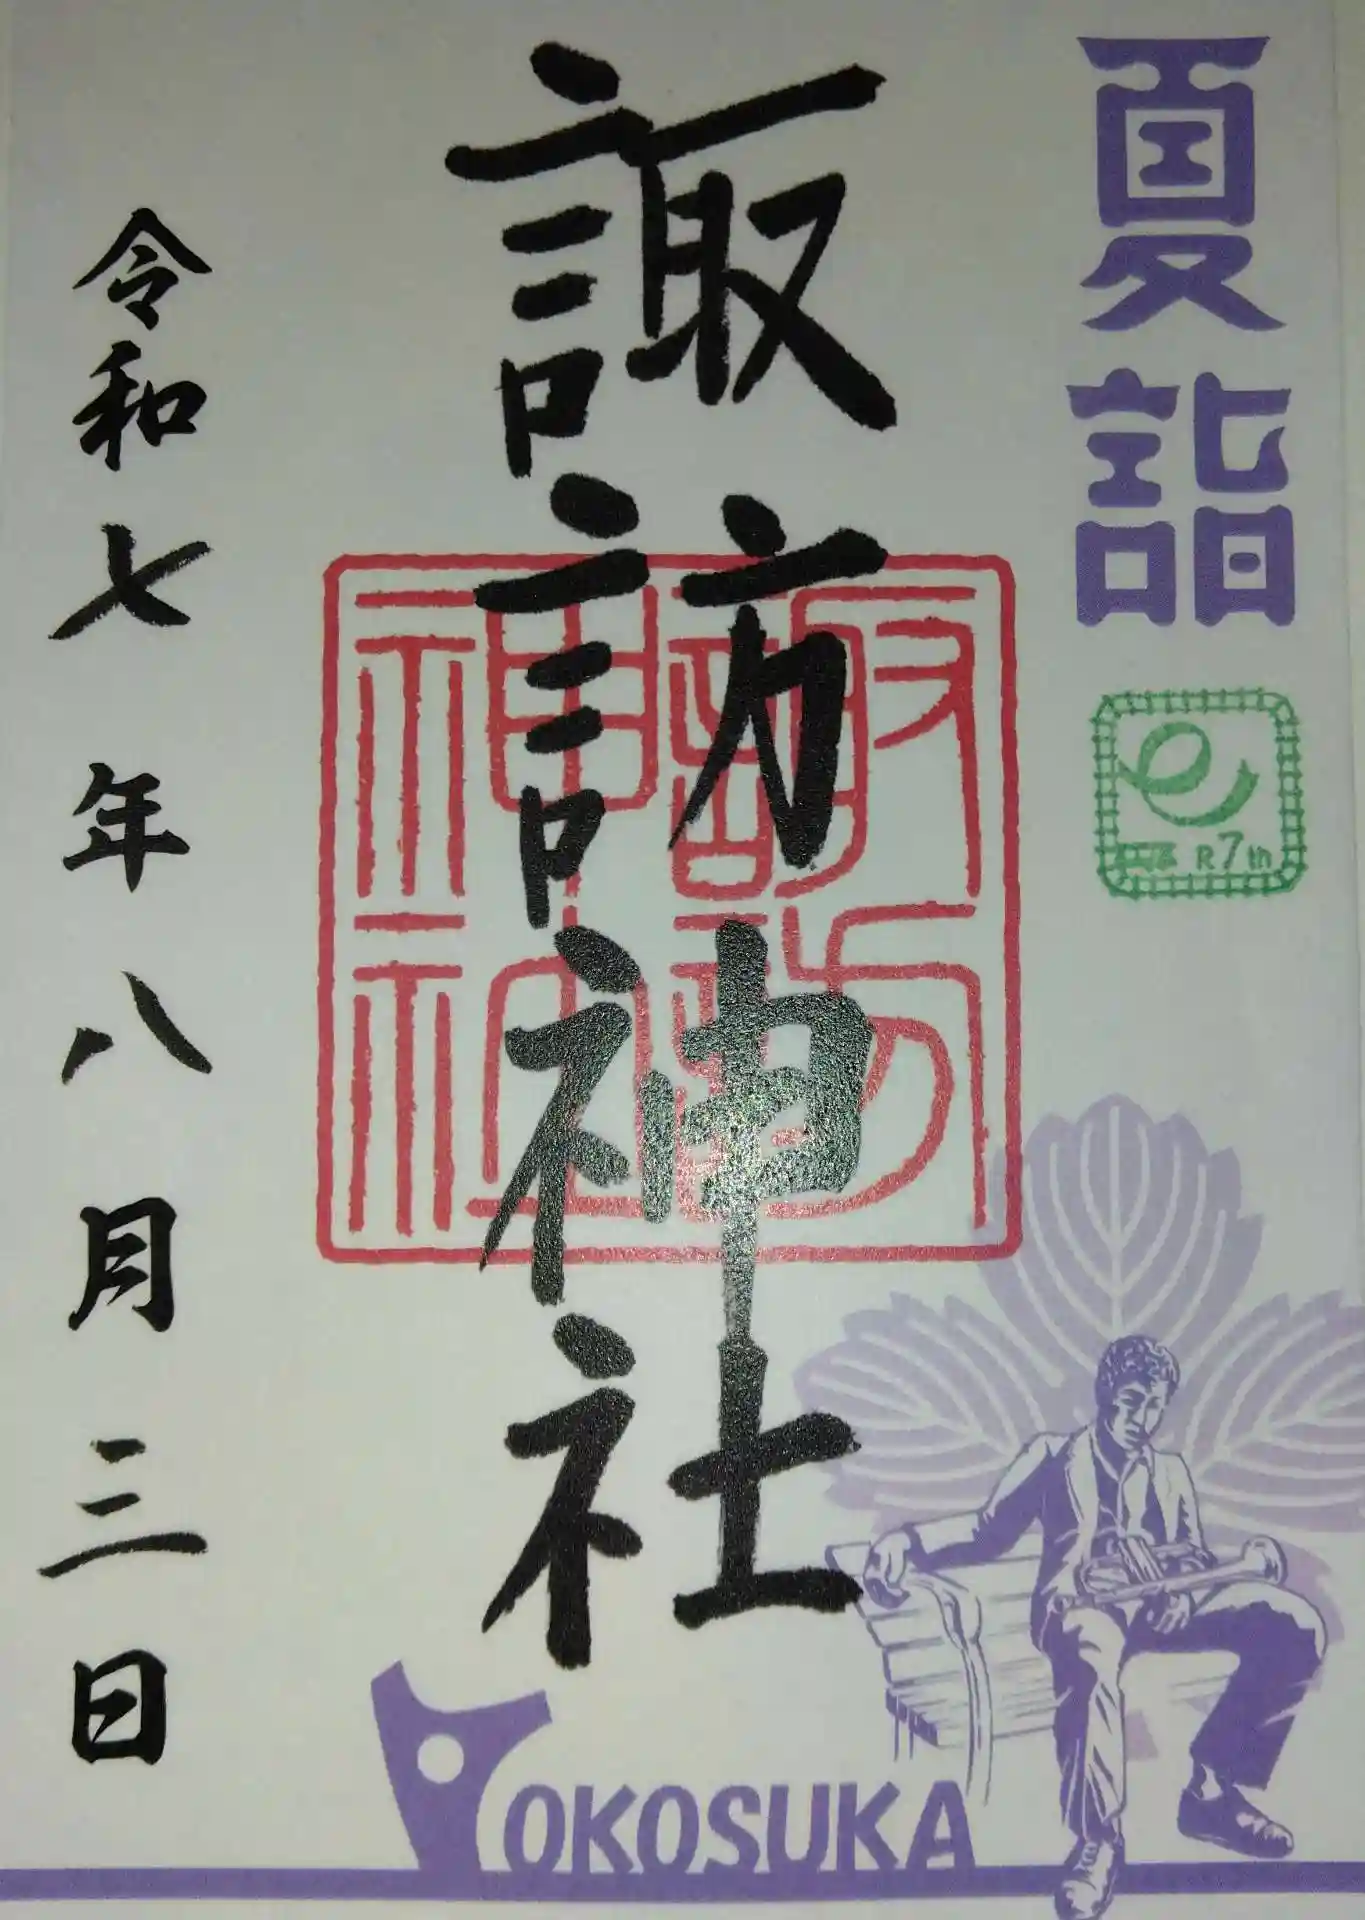 夏詣
R7th
諏訪神社
諏訪神社
令和七年八月三日
YOKOSUKA